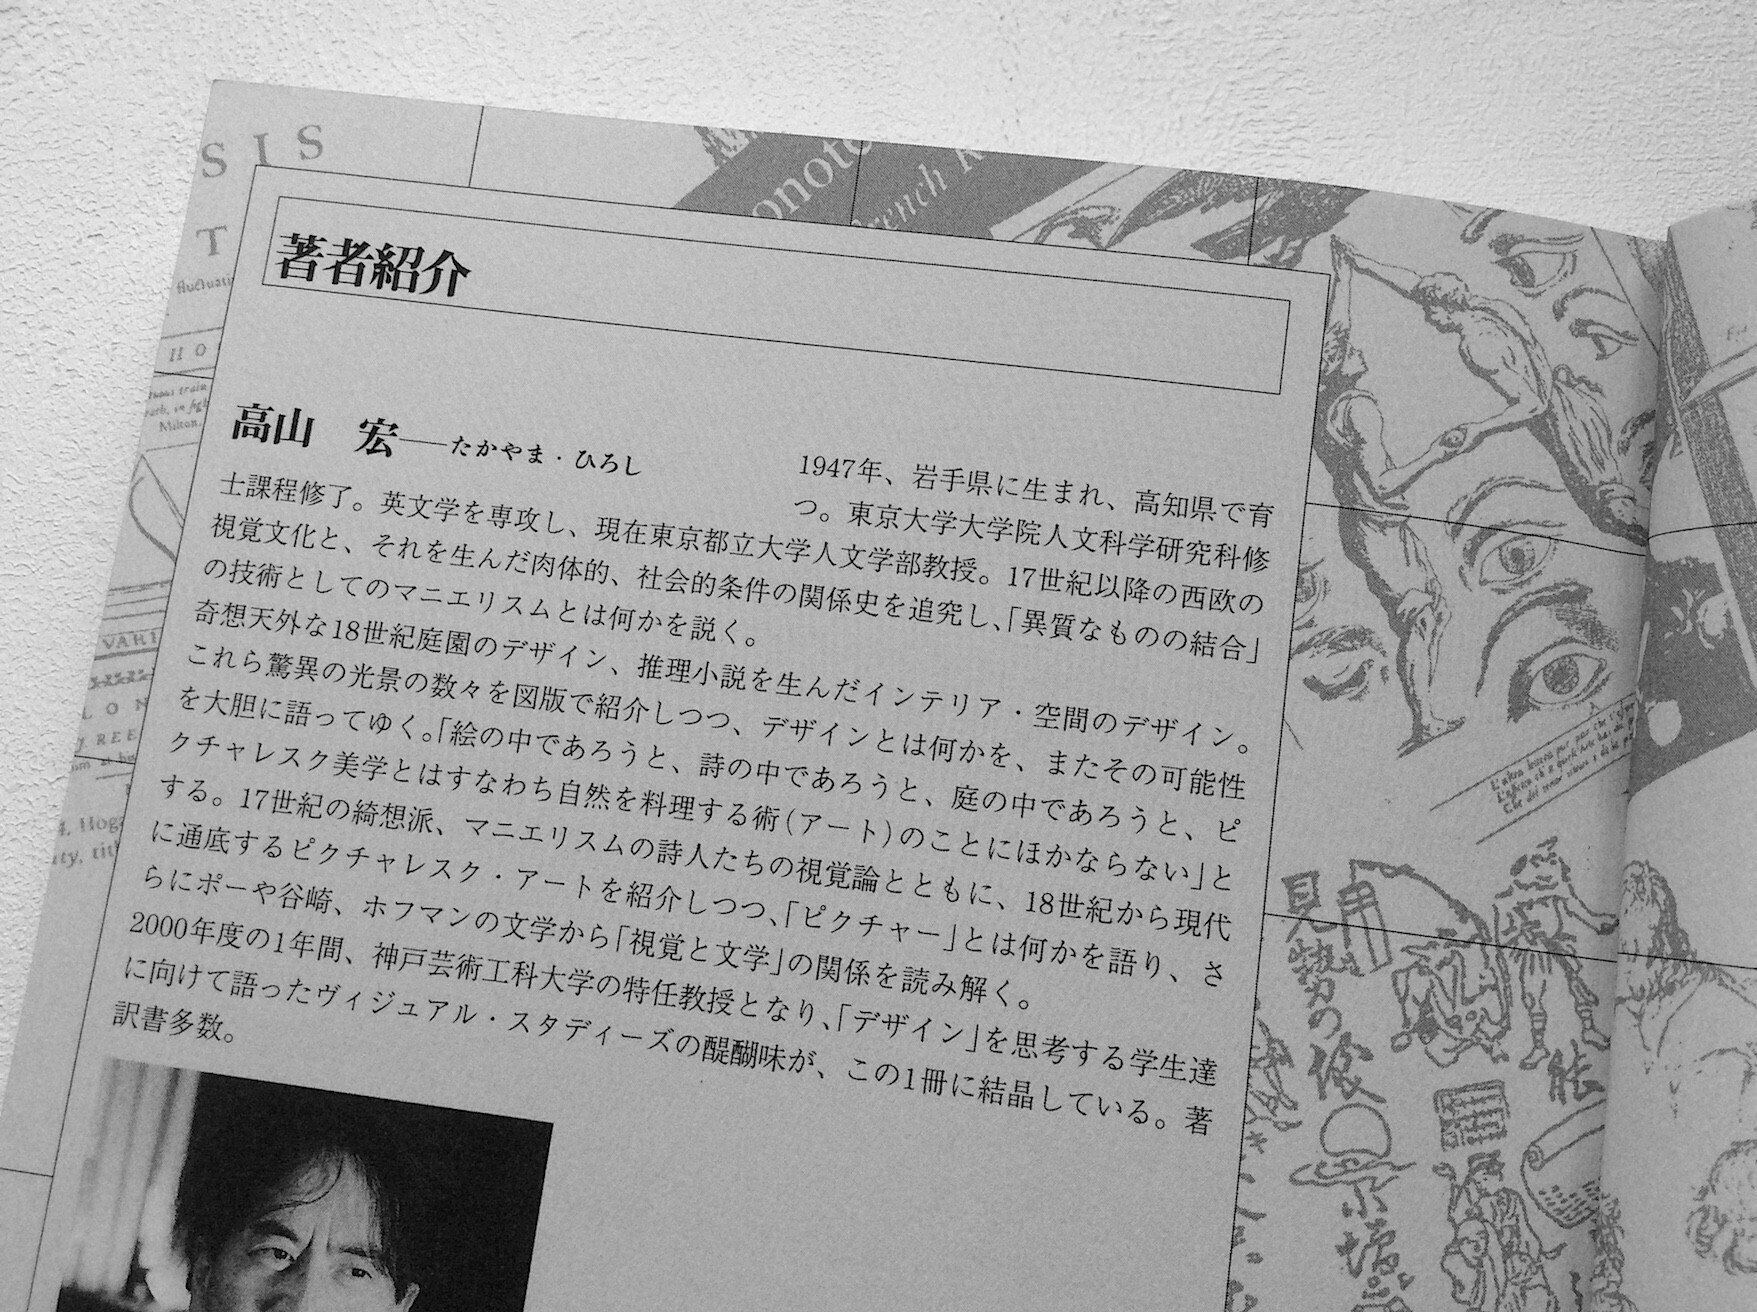 著者紹介
高山 宏——たかやま・ひろし
1947年、岩手県に生まれ、高知県で育
つ。東京大学大学院人文科学研究科修
士課程修了。英文学を専攻し、現在東京都立大学人文学部教授。17世紀以降の西欧の
視覚文化と、それを生んだ肉体的、社会的条件の関係史を追究し、「異質なものの結合」
の技術としてのマニエリスムとは何かを説く。
奇想天外な18世紀庭園のデザイン、推理小説を生んだインテリア・空間のデザイン。
これら驚異の光景の数々を図版で紹介しつつ、デザインとは何かを、またその可能性
を大胆に語ってゆく。「絵の中であろうと、詩の中であろうと、庭の中であろうと、ピ
クチャレスク美学とはすなわち自然を料理する術(アート)のことにほかならない」と
する。17世紀の綺想派、マニエリスムの詩人たちの視覚論とともに、18世紀から現代
に通底するピクチャレスク・アートを紹介しつつ、「ピクチャー」とは何かを語り、さ
らにポーや谷崎、ホフマンの文学から「視覚と文学」の関係を読み解く。
2000年度の1年間、神戸芸術工科大学の特任教授となり、「デザイン」を思考する学生達
に向けて語ったヴィジュアル・スタディーズの醍醐味が、この1冊に結晶している。著
訳書多数。
S I S
T
H O
Milton.
VARI
L O N
onoto
French
見勢の
能